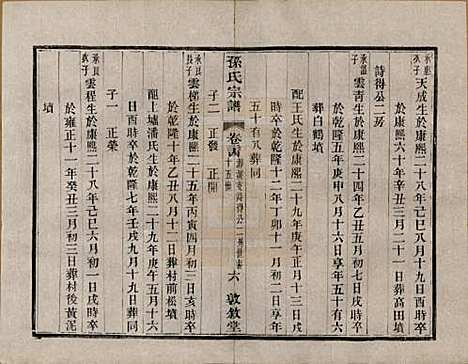 承懋次子 天成生於康熙二十八年九月十九日酉時卒
於雍正十一年癸丑三月二十一日葬高田墳
詩得公二房
承謨子 雲青生於康熙二十四年乙丑三月初一日戌時卒
於乾隆五年庚申八月十一日享年五十有六
葬白鶴墳
配王氏生於康熙二十九年庚午正月十三日戌
時卒於乾隆十二年丁卯十一月初二日享年
五十有八葬同
孫氏宗譜
卷
六
敦敘堂
子二 正發 正開
承良長子 雲梯生於康熙二十五年丙寅四月初三日亥時卒
於乾隆十年乙丑八月十一日葬村前松墳
配上墟潘氏生於康熙二十九年庚午五月十六
日酉時卒於乾隆七年壬戌九月十九日葬同
子一 正榮
承良次子 雲程生於康熙二十八年己巳六月初一日戌時卒
於雍正十一年癸丑三月初三日葬村後黃泥
墳